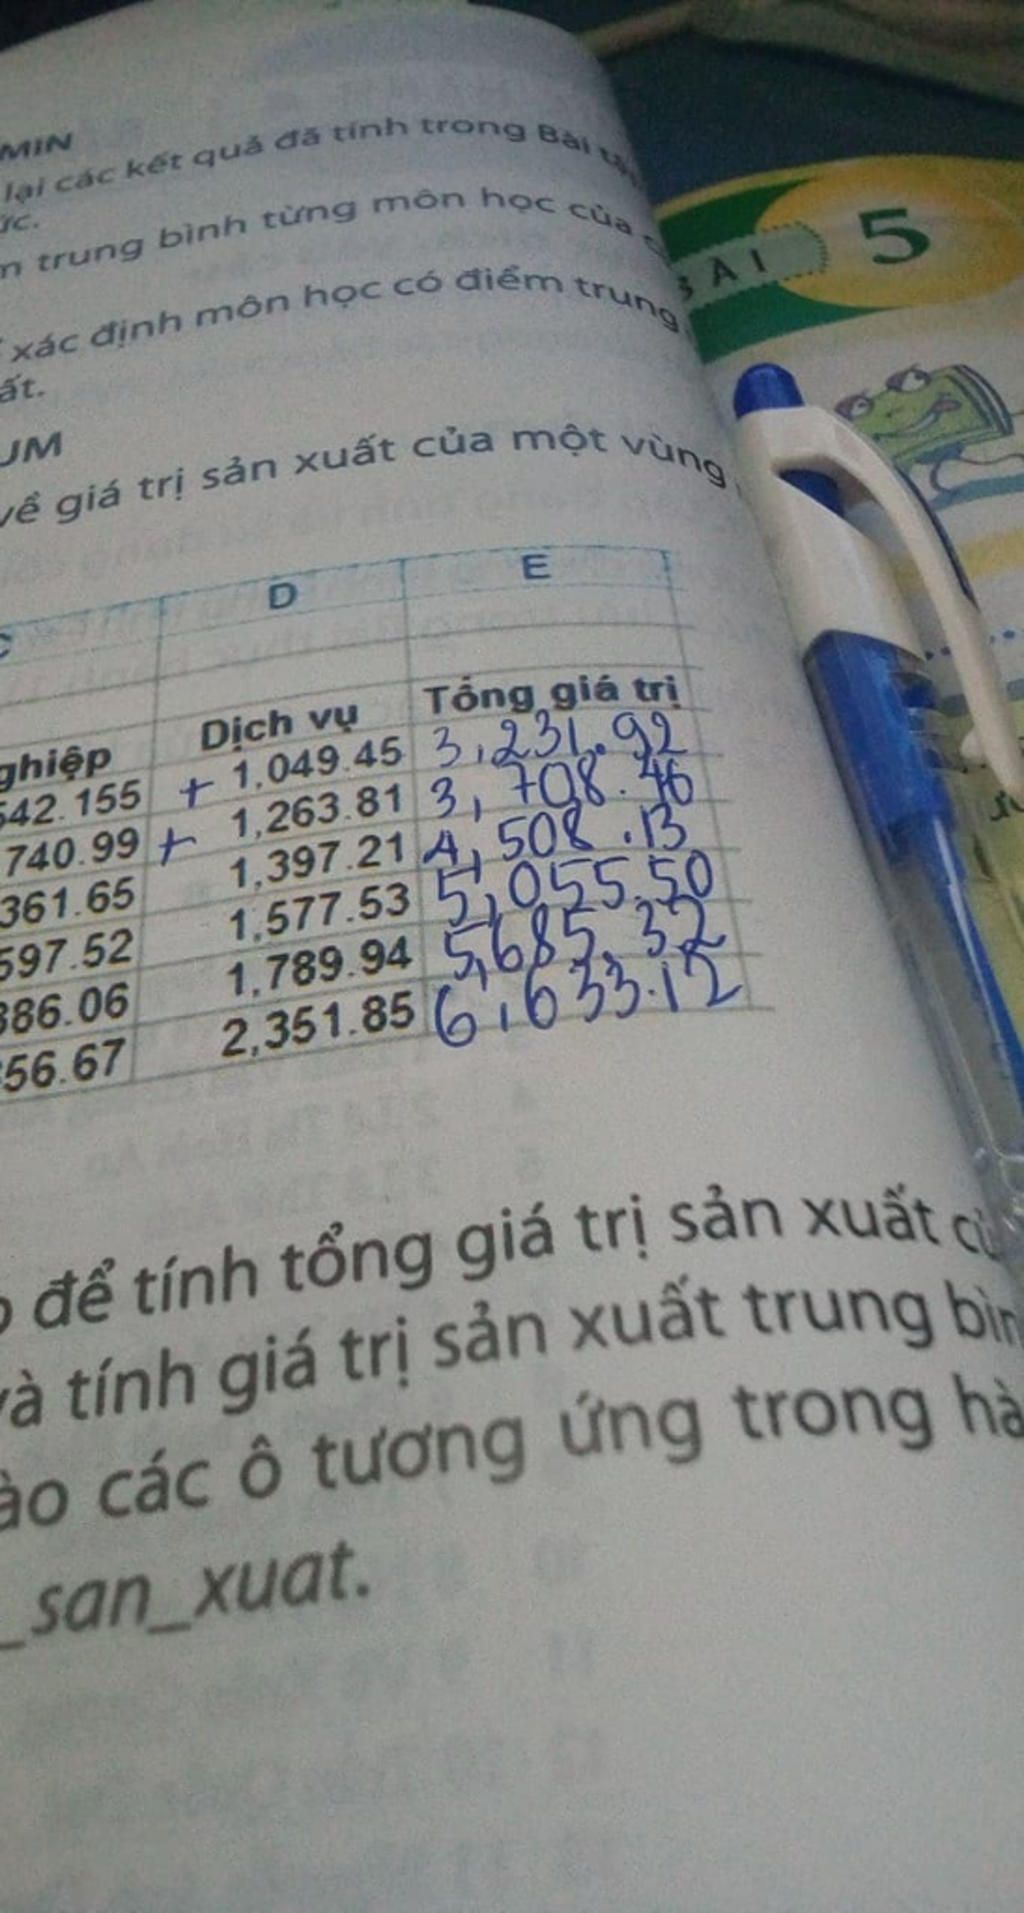 MIN
lại các kết quả đã tính trong Bài
ức.
trung bình từng môn học của
xác định môn học có điểm trung
ất.
UM
về giá trị sản xuất của một vùng
D E
ghiệp Dịch vụ Tổng giá trị
542.155 + 1,049.45 3,231.92
740.99 + 1,263.81 3,708.46
361.65 1,397.21 4,508.13
597.52 1,577.53 5,055.50
386.06 1,789.94 5,685.32
56.67 2,351.85 6,633.12
để tính tổng giá trị sản xuất
và tính giá trị sản xuất trung bìn
ào các ô tương ứng trong hà
_san_xuat.
BÀI 5